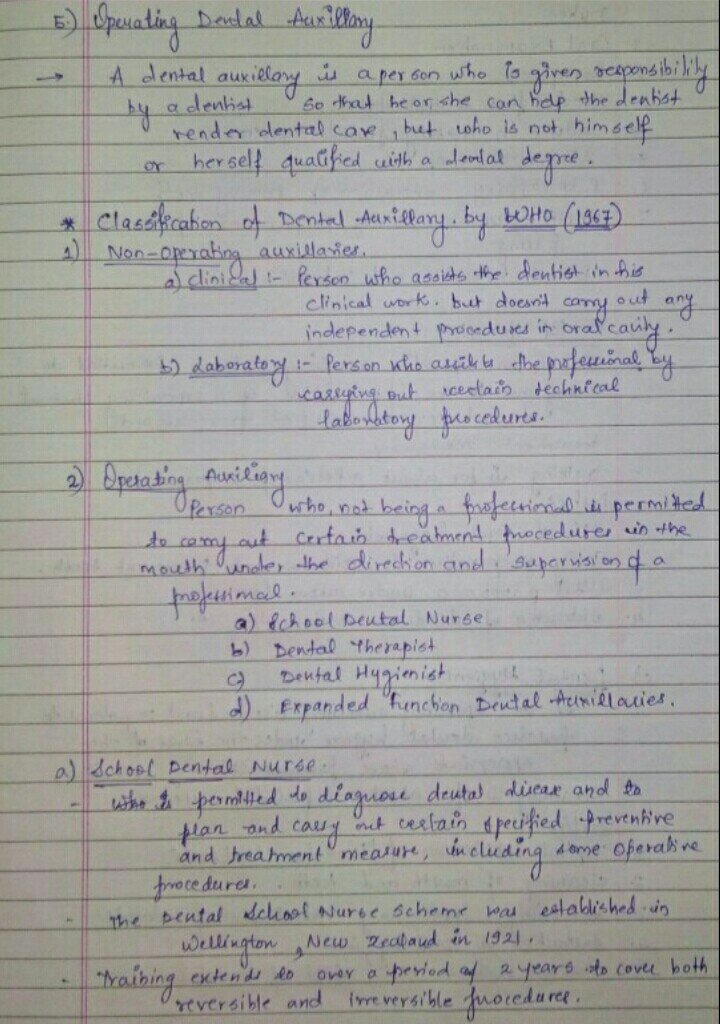 5.) Operating Dental Auxillary
→ A dental auxillary is a person who is given responsibility
by a dentist so that he or she can help the dentist
render dental care, but who is not himself
or herself qualified with a dental degree.
* Classification of Dental Auxillary. by WHO (1967)
1) Non-operating auxillaries.
a) clinical :- Person who assists the dentist in his
clinical work. but doesn't carry out any
independent procedures in oral cavity.
b) Laboratory :- Person who assists the professional by
carrying out certain technical
laboratory procedures.
2) Operating Auxiliary
Person who, not being a professional is permitted
to carry out certain treatment procedures in the
mouth under the direction and supervision of a
professional.
a) School Dental Nurse
b) Dental Therapist
c) Dental Hygienist
d) Expanded function Dental Auxillaries.
a) School Dental Nurse
- who is permitted to diagnose dental disease and to
plan and carry out certain specified preventive
and treatment measure, including some operative
procedures.
- The Dental School Nurse Scheme was established in
Wellington, New Zealand in 1921.
- Training extends to over a period of 2 years to cover both
reversible and irreversible procedures.